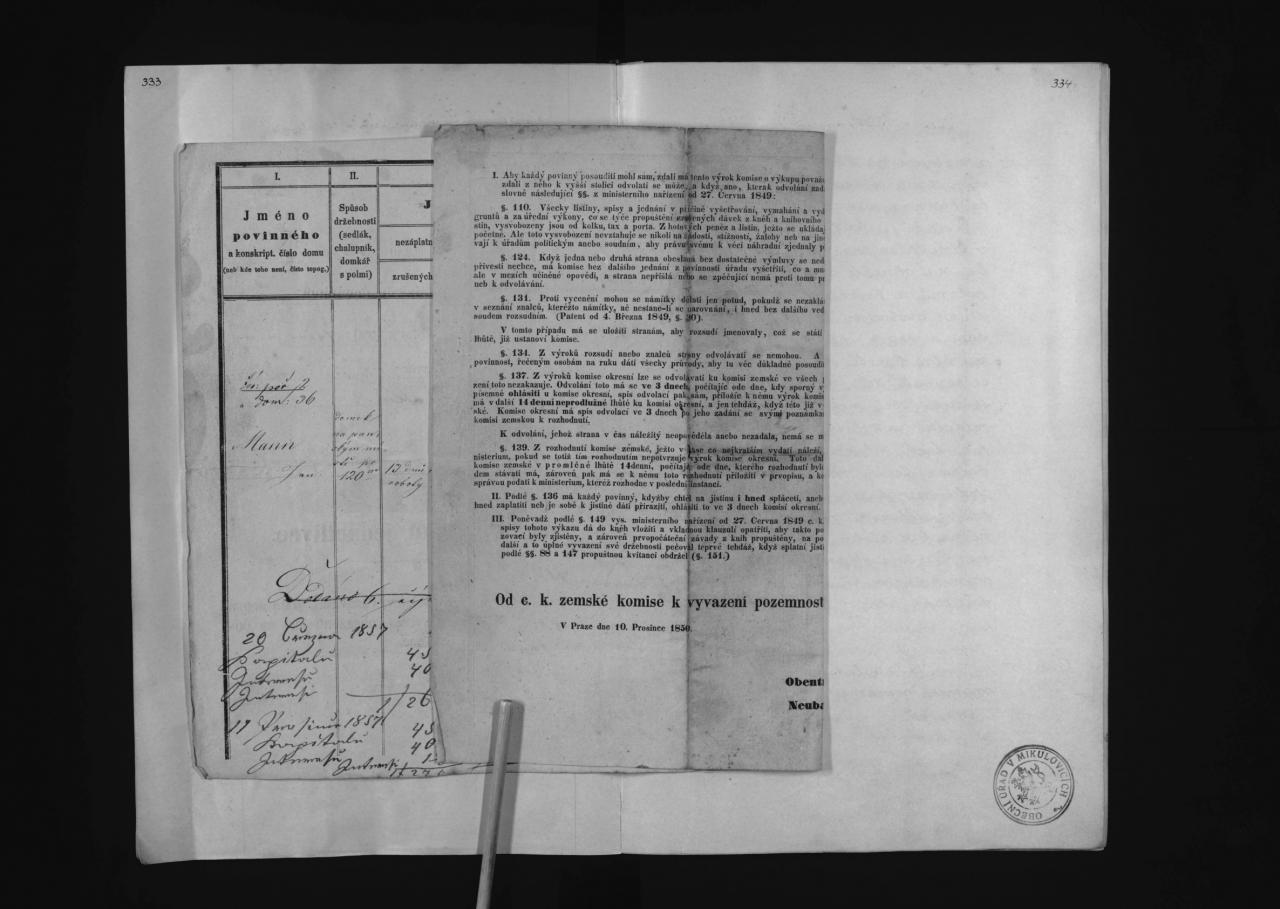 333
334
I.
II.
Jméno
povinného
a konskript. číslo domu
(neb kde toho není, číslo topog.)
Spůsob
držebnosti
(sedlák,
chalupník,
domkář
s polmi)
J
nezáplatn
zrušených
dom. 36
domek
Mann
Jan
120
13 dní
roboty
20 Března 1857
Kapitalu 45
40
26
17 Prosince 1857
Kapitalu 45
40
I. Aby každý povinný posouditi mohl sám, zdali má tento výrok komise o výkupu považo
zdali z něho k vyšší stolici odvolati se může, a když ano, kterak odvolání zad
slovně následující §§. z ministerního nařízení od 27. Června 1849:
§. 110. Všecky listiny, spisy a jednání v příčině vyšetřování, vymáhání a vyd
gruntů a za úřední výkony, co se týče propuštění zavedených dávek z kněh a knihovního
stin, vysvobozeny jsou od kolku, tax a porta. Z hotových peněz a listin, ježto se ukládaj
početné. Ale toto vysvobození nevztahuje se nikoli na žádosti, stížnosti, žaloby neb na jin
vají k úřadům politickým anebo soudním, aby právu svému k věci náhradní zjednaly p
§. 124. Když jedna nebo druhá strana obeslaná bez dostatečné výmluvy se ned
přivésti nechce, má komise bez dalšího jednání z povinnosti úřadu vyšetřiti, co a mn
ale v mezích učiněné opovědi, a strana nepřišlá nebo se zpěčující nemá proti tomu p
neb k odvolávání.
§. 131. Proti vycenění mohou se námitky dělati jen potud, pokudž se nezaklá
v seznání znalců, kteréžto námitky, ač nestane-li se narovnání, i hned bez dalšího ved
soudem rozsudním. (Patent od 4. Března 1849, §. 30).
V tomto případu má se uložiti stranám, aby rozsudí jmenovaly, což se státi
lhůtě, již ustanoví komise.
§. 134. Z výroků rozsudí anebo znalců strany odvolávati se nemohou. A
povinnost, řečeným osobám na ruku dáti všecky průvody, aby tu věc důkladně posoudi
§. 137. Z výroků komise okresní lze se odvolávati ku komisi zemské ve všech
zení toto nezakazuje. Odvolání toto má se ve 3 dnech, počítajíc ode dne, kdy sporný v
písemně ohlásiti u komise okresní, spis odvolací pak sám, přiložíc k němu výrok komis
má v další 14denní neprodlužné lhůtě ku komisi okresní, a jen tehdáž, když této již v
ské. Komise okresní má spis odvolací ve 3 dnech po jeho zadání se svými poznámka
komisi zemskou k rozhodnutí.
K odvolání, jehož strana v čas náležitý neopověděla anebo nezadala, nemá se m
§. 139. Z rozhodnutí komise zemské, ježto v čase co nejkratším vydati náleží,
nisterium, pokud se totiž tím rozhodnutím nepotvrzuje výrok komise okresní. Toto dal
komise zemské v promlčné lhůtě 14denní, počítaje ode dne, kterého rozhodnutí bylo
dem stávati má, zároveň pak má se k němu toto rozhodnutí přiložiti v prvopisu, a ko
správou podati k ministerium, kteréž rozhodne v poslední instancí.
II. Podlé §. 136 má každý povinný, kdyžby chtěl na jistinu i hned spláceti, aneb
hned zaplatiti neb je sobě k jistině dáti přiraziti, ohlásiti to ve 3 dnech komisi okresní.
III. Poněvadž podlé §. 149 vys. ministerního nařízení od 27. Června 1849 c. k.
spisy tohoto výkazu dá do kněh vložiti a vkladnou klauzulí opatřiti, aby takto po
zovací byly zjištěny, a zároveň prvopočáteční závady z knih propuštěny, na po
další a to úplné vyvazení své držebnosti pečoval teprvé tehdáž, když splatní jisti
podlé §§. 88 a 147 propustnou kvitanci obdržel (§. 151.)
Od c. k. zemské komise k vyvazení pozemnost
V Praze dne 10. Prosince 1850.
Obent
Neuba
OBECNÍ ÚŘAD V MIKULOVICÍCH